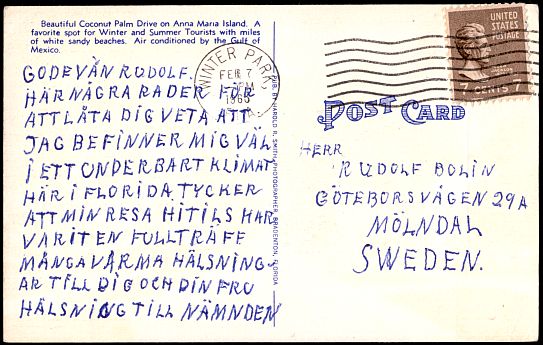 Beautiful Coconut Palm Drive on Anna Maria Island. A
favorite spot for Winter and Summer Tourists with miles
of white sandy beaches. Air conditioned by the Gulf of
Mexico.
GODE VÄN RUDOLF.
HÄR NÅGRA RADER FÖR
ATT LÅTA DIG VETA ATT
JAG BEFINNER MIG VÄL
I ETT UNDERBART KLIMAT
HÄR I FLORIDA TYCKER
ATT MIN RESA HITILS HAR
VARIT EN FULLTRÄFF
MÅNGA VARMA HÄLSNING-
AR TILL DIG OCH DIN FRU
HÄLSNING TILL NÄMNDEN
PUB. BY HAROLD R. SMITH, PHOTOGRAPHER, BRADENTON, FLORIDA
WINTER PARK
FEB 7
PM
1963
UNITED
STATES
POSTAGE
7 CENTS 7
POST CARD
HERR
RUDOLF BOLIN
GÖTEBORSVÄGEN 29A
MÖLNDAL
SWEDEN.